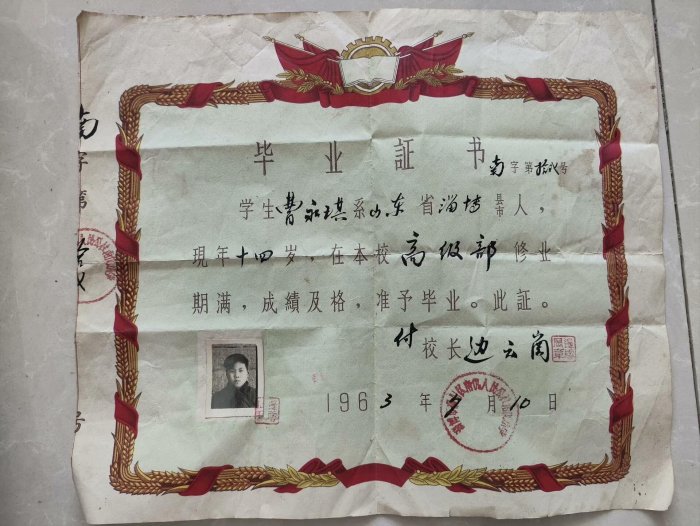 毕业証书
南字第拾贰号
学生曹永琪系山东省淄博县市人，
現年十四岁，在本校高级部修业
期满，成績及格，准予毕业。此証。
付校长边云岗
1963年7月10日
南字第
号